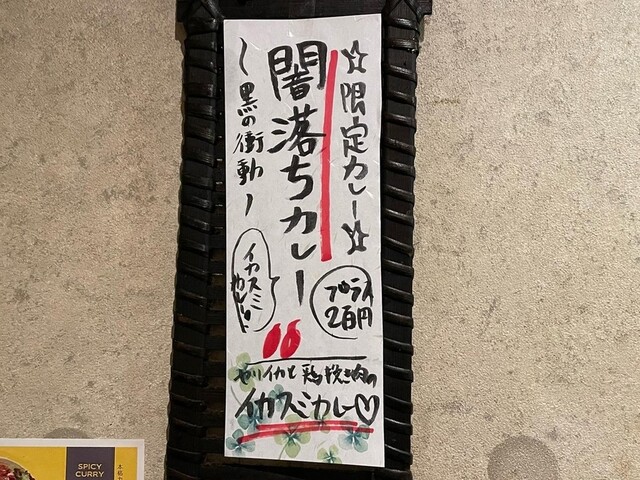 ☆限定カレー☆
闇落ちカレー
～黒の衝動～
プラス
200円
イカスミ
やりイカと鶏挽き肉の
イカスミカレー♡
SPICY
CURRY